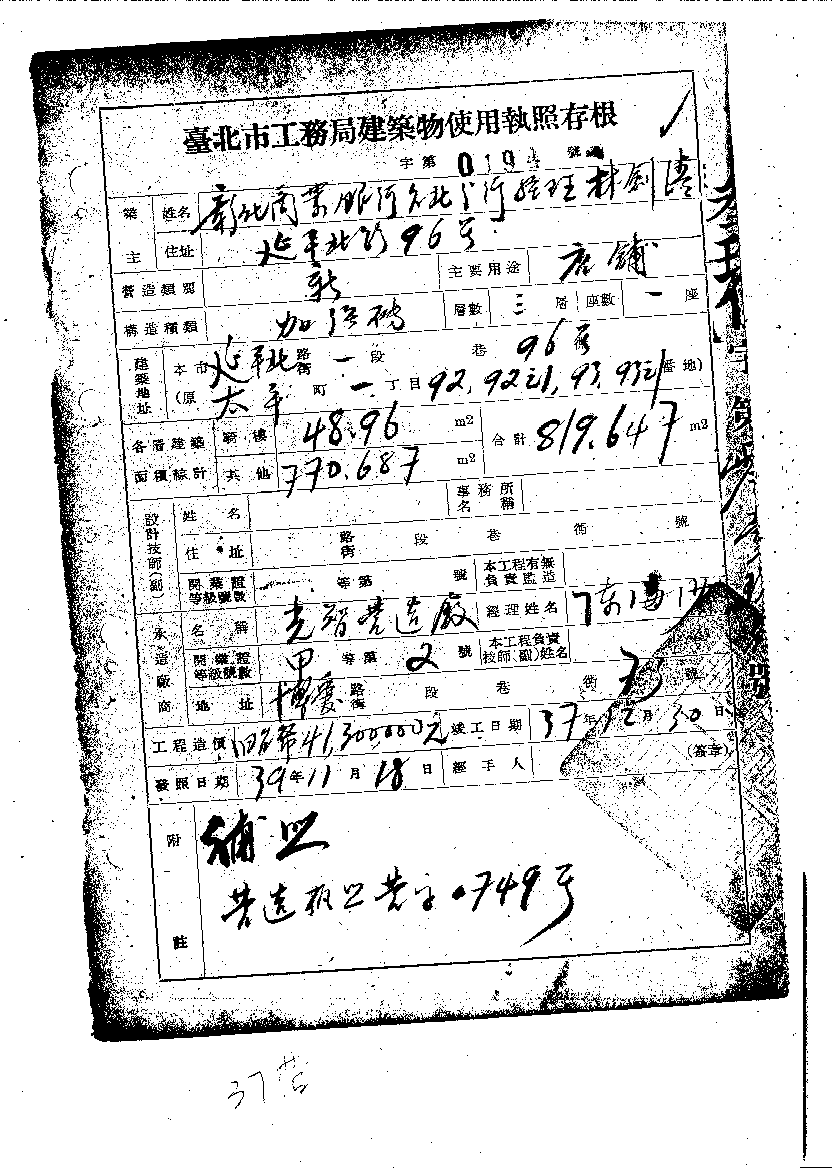 臺北市工務局建築物使用執照存根
字第 號
築主 姓名 彰化商業銀行台北分行經理林劍清
住址 延平北路96号
營造類別 新 主要用途 店舖
構造種類 加强磚 層數 三層 座數 一座
建築地址 本市 延平北路街一段 巷 96号 衖
(原 太平町一丁目92,92之1,93,93之1番地)
各層建築面積綜計 騎樓 48.96 m2 合計 819.647 m2
其他 770.687 m2
設計技師(副) 姓名 事務所名稱
住址 路街 段 巷 衖 號
開業證等級號數 等第 號 本工程有無負責監造
承造廠商 名稱 光智營造廠 經理姓名 陳海
開業證等級號數 甲等第2號 本工程負責技師(副)姓名
地址 博愛路街 段 巷 衖 號
工程造價 旧台幣41,300,000元 竣工日期 37年12月30日
發照日期 39年11月18日 經手人 (簽章)
附註 補照
營造執照營字0749号
37營